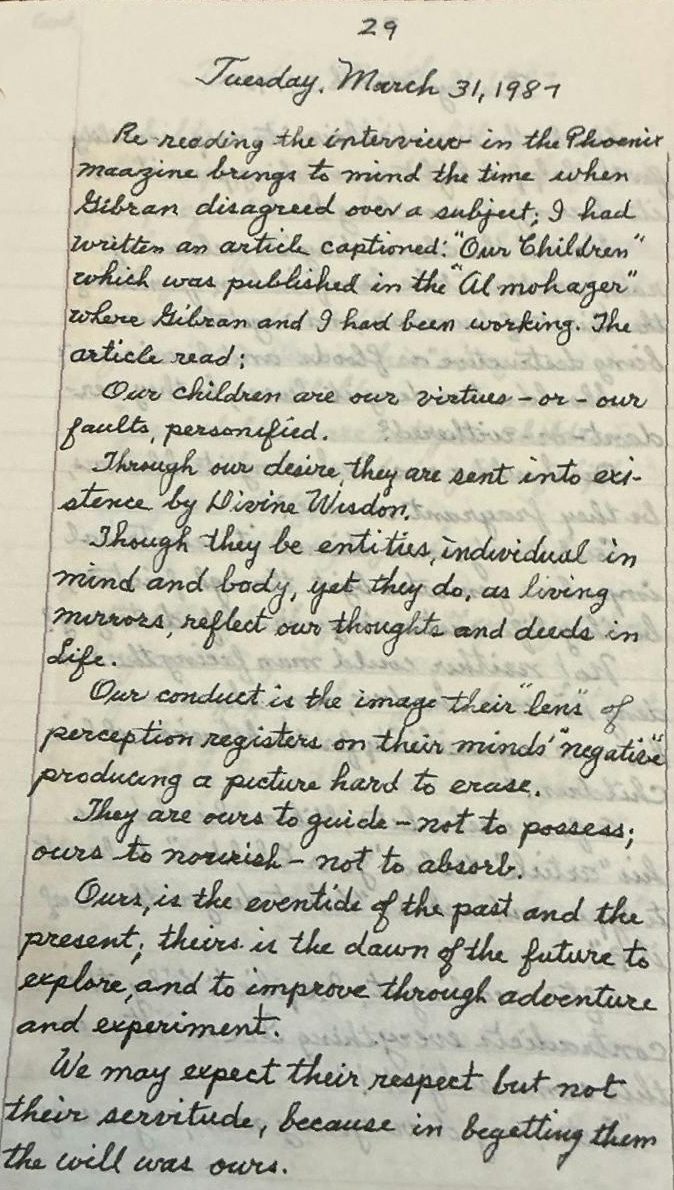 29
Tuesday, March 31, 1987
Re-reading the interview in the Phoenix
maazine brings to mind the time when
Gibran disagreed over a subject; I had
written an article captioned: "Our Children"
which was published in the "Al mohager"
where Gibran and I had been working. The
article read:
Our children are our virtues - or - our
faults, personified.
Through our desire, they are sent into exi-
stence by Divine Wisdon.
Though they be entities, individual in
mind and body, yet they do, as living
mirrors, reflect our thoughts and deeds in
Life.
Our conduct is the image their "lens" of
perception registers on their minds' "negative"
producing a picture hard to erase.
They are ours to guide - not to possess;
ours to nourish - not to absorb.
Ours, is the eventide of the past and the
present; theirs is the dawn of the future to
explore, and to improve through adventure
and experiment.
We may expect their respect but not
their servitude, because in begetting them
the will was ours.